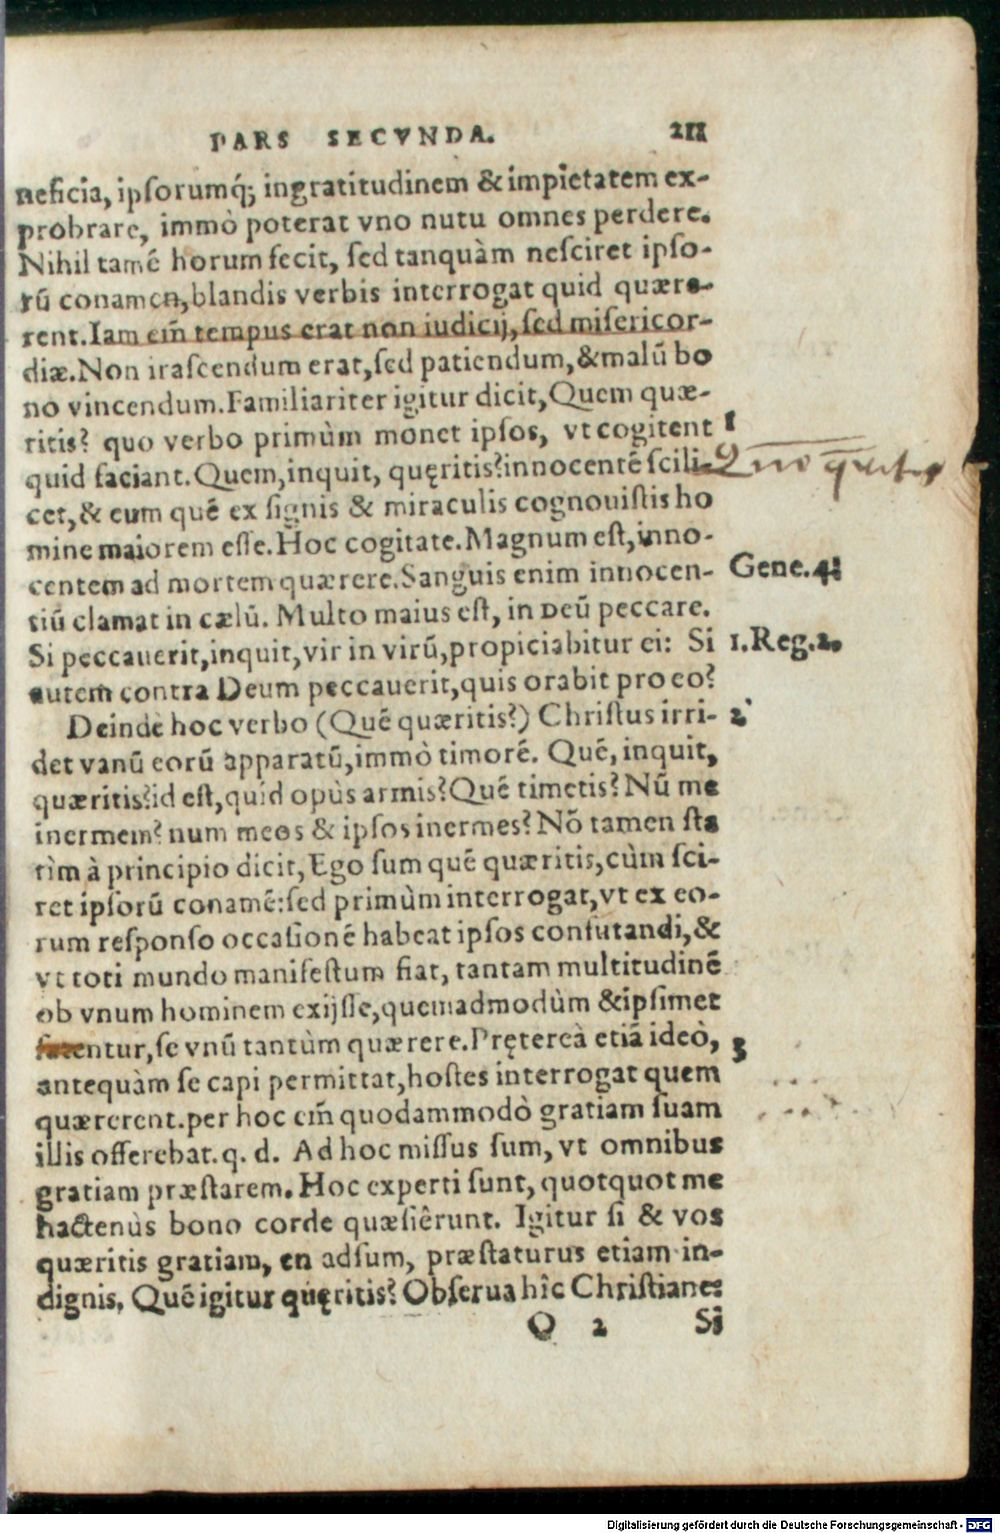 PARS SECVNDA. 211
neficia, ipſorumq́; ingratitudinem & impietatem ex-
probrare, immò poterat vno nutu omnes perdere.
Nihil tamē horum fecit, ſed tanquàm neſciret ipſo-
rū conamen, blandis verbis interrogat quid quære-
rent. Iam em̄ tempus erat non iudicij, ſed miſericor-
diæ. Non iraſcendum erat, ſed patiendum, & malū bo
no vincendum. Familiariter igitur dicit, Quem quæ-
ritis? quo verbo primùm monet ipſos, vt cogitent 1
quid faciant. Quem, inquit, quęritis? innocentē ſcili-
cet, & eum quē ex ſignis & miraculis cognouiſtis ho
mine maiorem eſſe. Hoc cogitate. Magnum eſt, inno-
centem ad mortem quærere. Sanguis enim innocen- Gene. 4.
tiū clamat in cælū. Multo maius eſt, in DEū peccare.
Si peccauerit, inquit, vir in virū, propiciabitur ei: Si 1. Reg. 2.
autem contra Deum peccauerit, quis orabit pro eo?
Deinde hoc verbo (Quē quæritis?) Chriſtus irri- 2
det vanū eorū apparatū, immò timorē. Quē, inquit,
quæritis? id eſt, quid opùs armis? Quē timetis? Nū me
inermem? num meos & ipſos inermes? Nō tamen ſta
tìm à principio dicit, Ego ſum quē quæritis, cùm ſci-
ret ipſorū conamē: ſed primùm interrogat, vt ex eo-
rum reſponſo occaſionē habeat ipſos confutandi, &
vt toti mundo manifeſtum fiat, tantam multitudinē
ob vnum hominem exijſſe, quemadmodùm & ipſimet
fatentur, ſe vnū tantùm quærere. Prętereà etiā ideò, 3
antequàm ſe capi permittat, hoſtes interrogat quem
quærerent. per hoc em̄ quodammodò gratiam ſuam
illis offerebat. q. d. Ad hoc miſſus ſum, vt omnibus
gratiam præſtarem. Hoc experti ſunt, quotquot me
hactenùs bono corde quæſiêrunt. Igitur ſi & vos
quæritis gratiam, en adſum, præſtaturus etiam in-
dignis. Quē igitur quęritis? Obſerua hîc Chriſtiane:
Q 2 Si
Digitalisierung gefördert durch die Deutsche Forschungsgemeinschaft - DFG